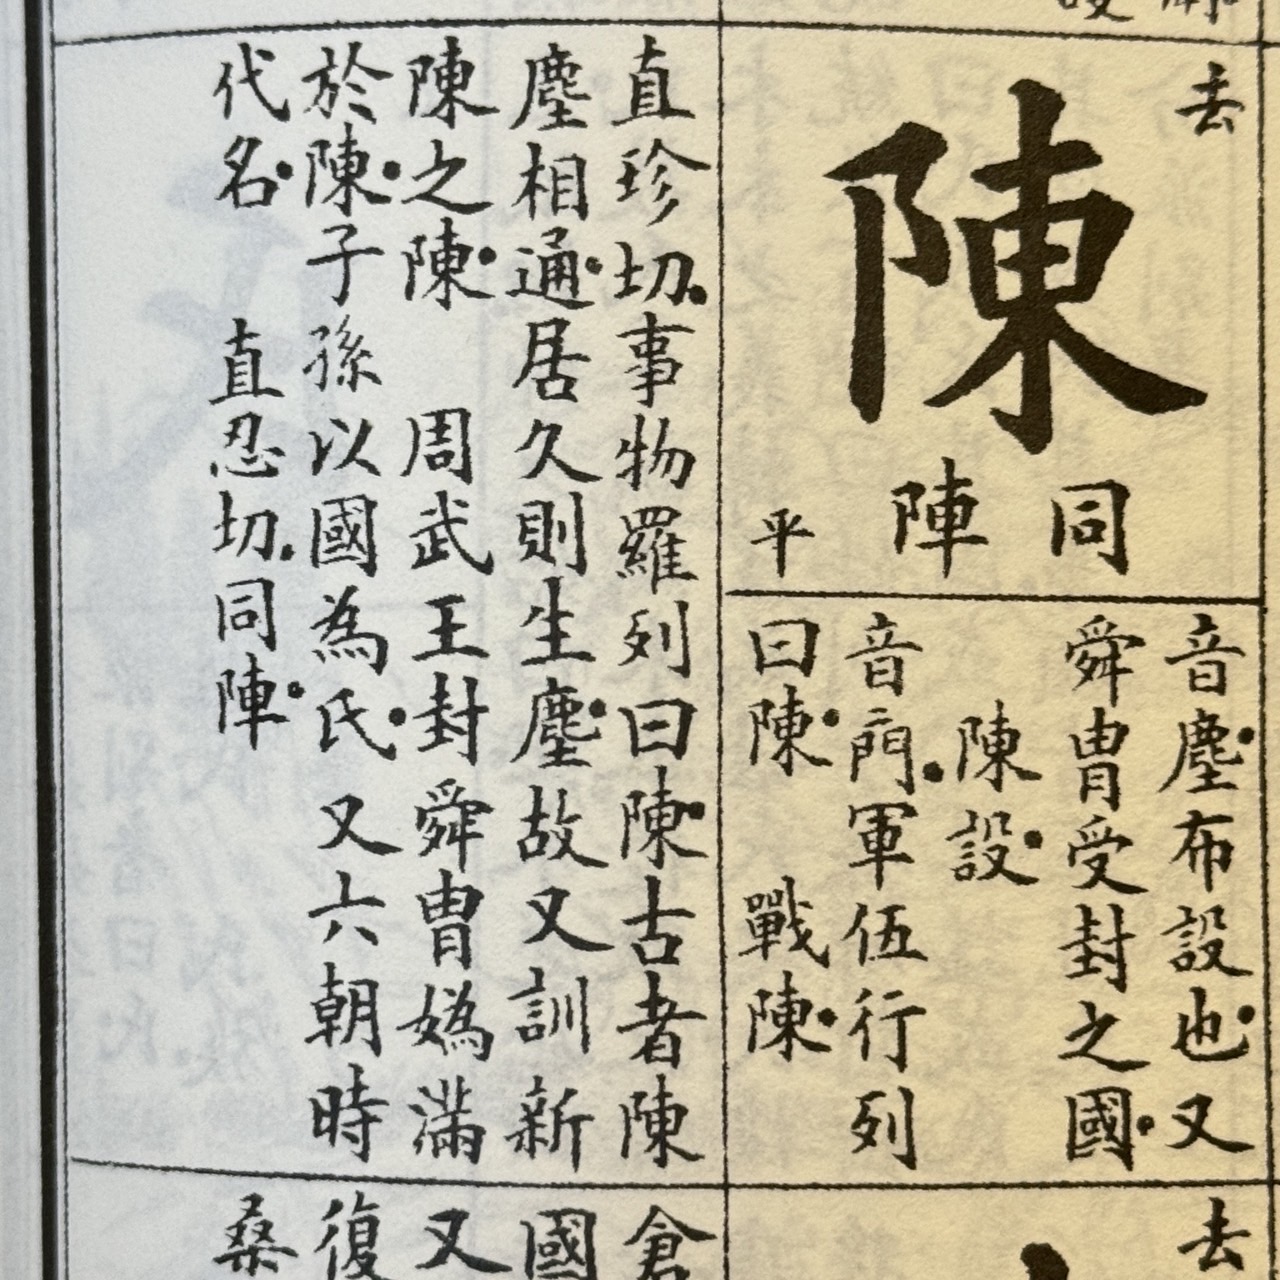 去
陳
同
陣
平
音塵布設也又
舜胄受封之國
陳設
音門軍伍行列
曰陳 戰陳
直珍切事物羅列曰陳古者陳
塵相通居久則生塵故又訓新
陳之陳 周武王封舜胄媯滿
於陳子孫以國為氏又六朝時
代名 直忍切同陣
去
倉
國
又
復
桑